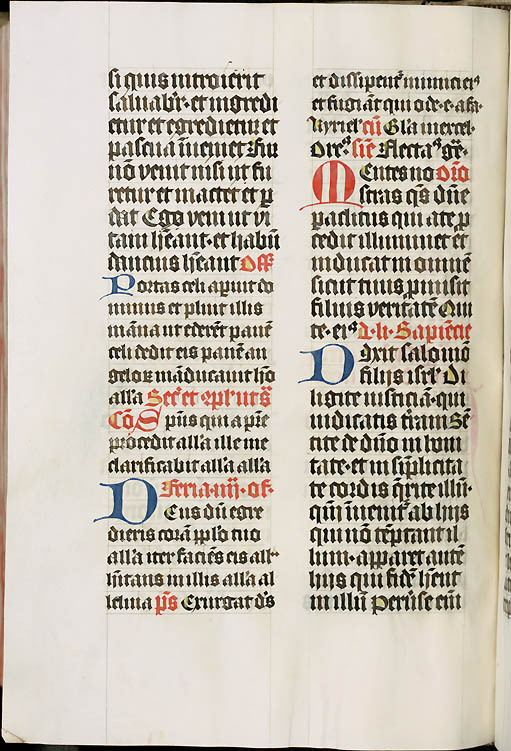 si quis introierit
saluabit᷑· et ingredi
etur et egredietur et
pascua īueniet Fur
nō venit nisi ut fu
retur et mactet et p̲
dat Ego veni ut vi
tam hēant· et habū
dancius hēant Off
Portas celi aperuit do
minus et pluit illis
māna ut ederēt panē
celi dedit eis panē an
gelorꝫ māducauit hō
all'a Sec̄t et ꝯpl' ut s̄
Cō Spūs qui a p̄re
procedit all'a ille me
clarificabit all'a all'a
Feria· iiij· of·
Deus dū egre
dieris corā pp'lo tuo
all'a iter faciēs eis all'
hītans in illis all'a al
leluia p̄s Exurgat d̄s
et dissipent᷑ inimici eiꝰ
et fugiāt qui od'e·e·a fa·
kyriel' cū Gl'a in excel·
Ore· sn̄e Flectaꝰ ge·
Mentes no Orō
stras q̄s dn̄e
paclitus qui a te p̲
cedit illuminet et̄
inducat in omnē
sicut tuus p̲misit
filius veritatē Qui
te· eiꝰ d· li· Sapiēcie
Dixit salomō
filijs isrl' Di
ligite iusticiā· qui
iudicatis t̄ram Sen
tite de dn̄o in boni
tate· et in siplicita
te cordis q̄rite illū·
qm̄ īuenit᷑ ab hijs
qui nō tēptant il
lum· apparet autē
hijs qui fidē hēnt
in illū Peruse eni